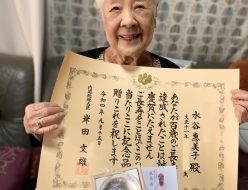 水谷恵美子 殿
あなたが百歳のご長寿を
達成されたことは
慶賀にたえません
当たり 記念品
贈りこれを祝します
令和四年九月十五日
内閣総理大臣 岸田文雄